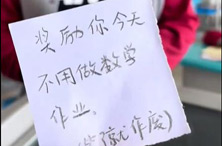 奖励你今天
不用做数学
作业。
就作废)